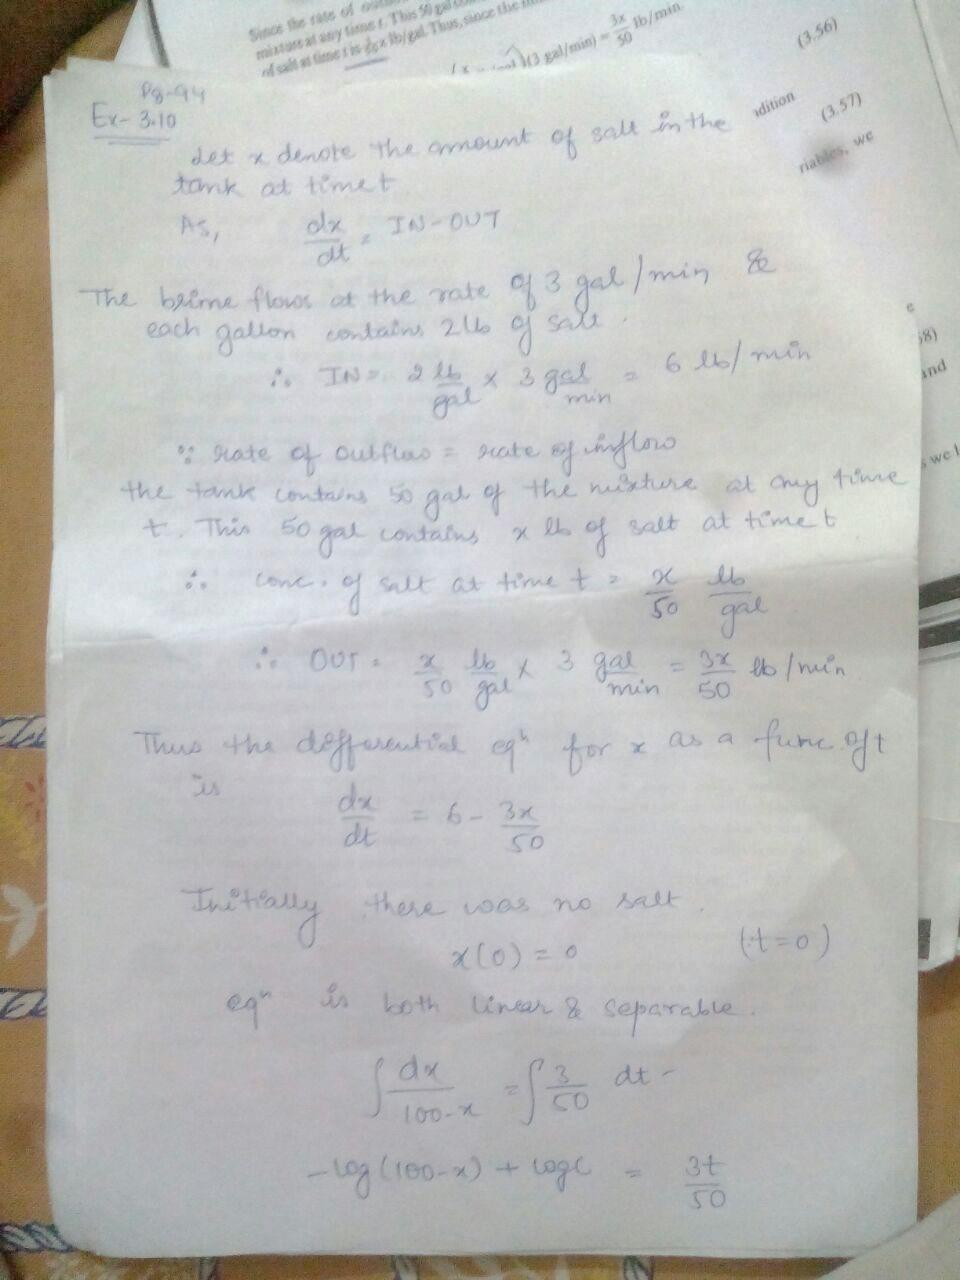 Since the rate of
mixture at any time t. This 50 gal
of salt at time t is x lb/gal. Thus, since the
(3 gal/min) = 3x/50 lb/min
(3.56)
dition
(3.57)
riables, we
8)
and
we
Pg-94
Ex- 3.10
Let x denote the amount of salt in the
tank at time t
As, dx/dt = IN-OUT
The brine flows at the rate of 3 gal/min &
each gallon contains 2 lb of salt.
∴ IN = 2 lb/gal × 3 gal/min = 6 lb/min
∵ rate of outflow = rate of inflow
the tank contains 50 gal of the mixture at any time
t. This 50 gal contains x lb of salt at time t
∴ conc. of salt at time t = x/50 lb/gal
∴ OUT = x/50 lb/gal × 3 gal/min = 3x/50 lb/min
Thus the differential eqn for x as a func. of t
is
dx/dt = 6 - 3x/50
Initially there was no salt.
x(0) = 0 (t=0)
eqn is both linear & separable.
∫ dx/(100-x) = ∫ 3/50 dt -
-log(100-x) + logc = 3t/50